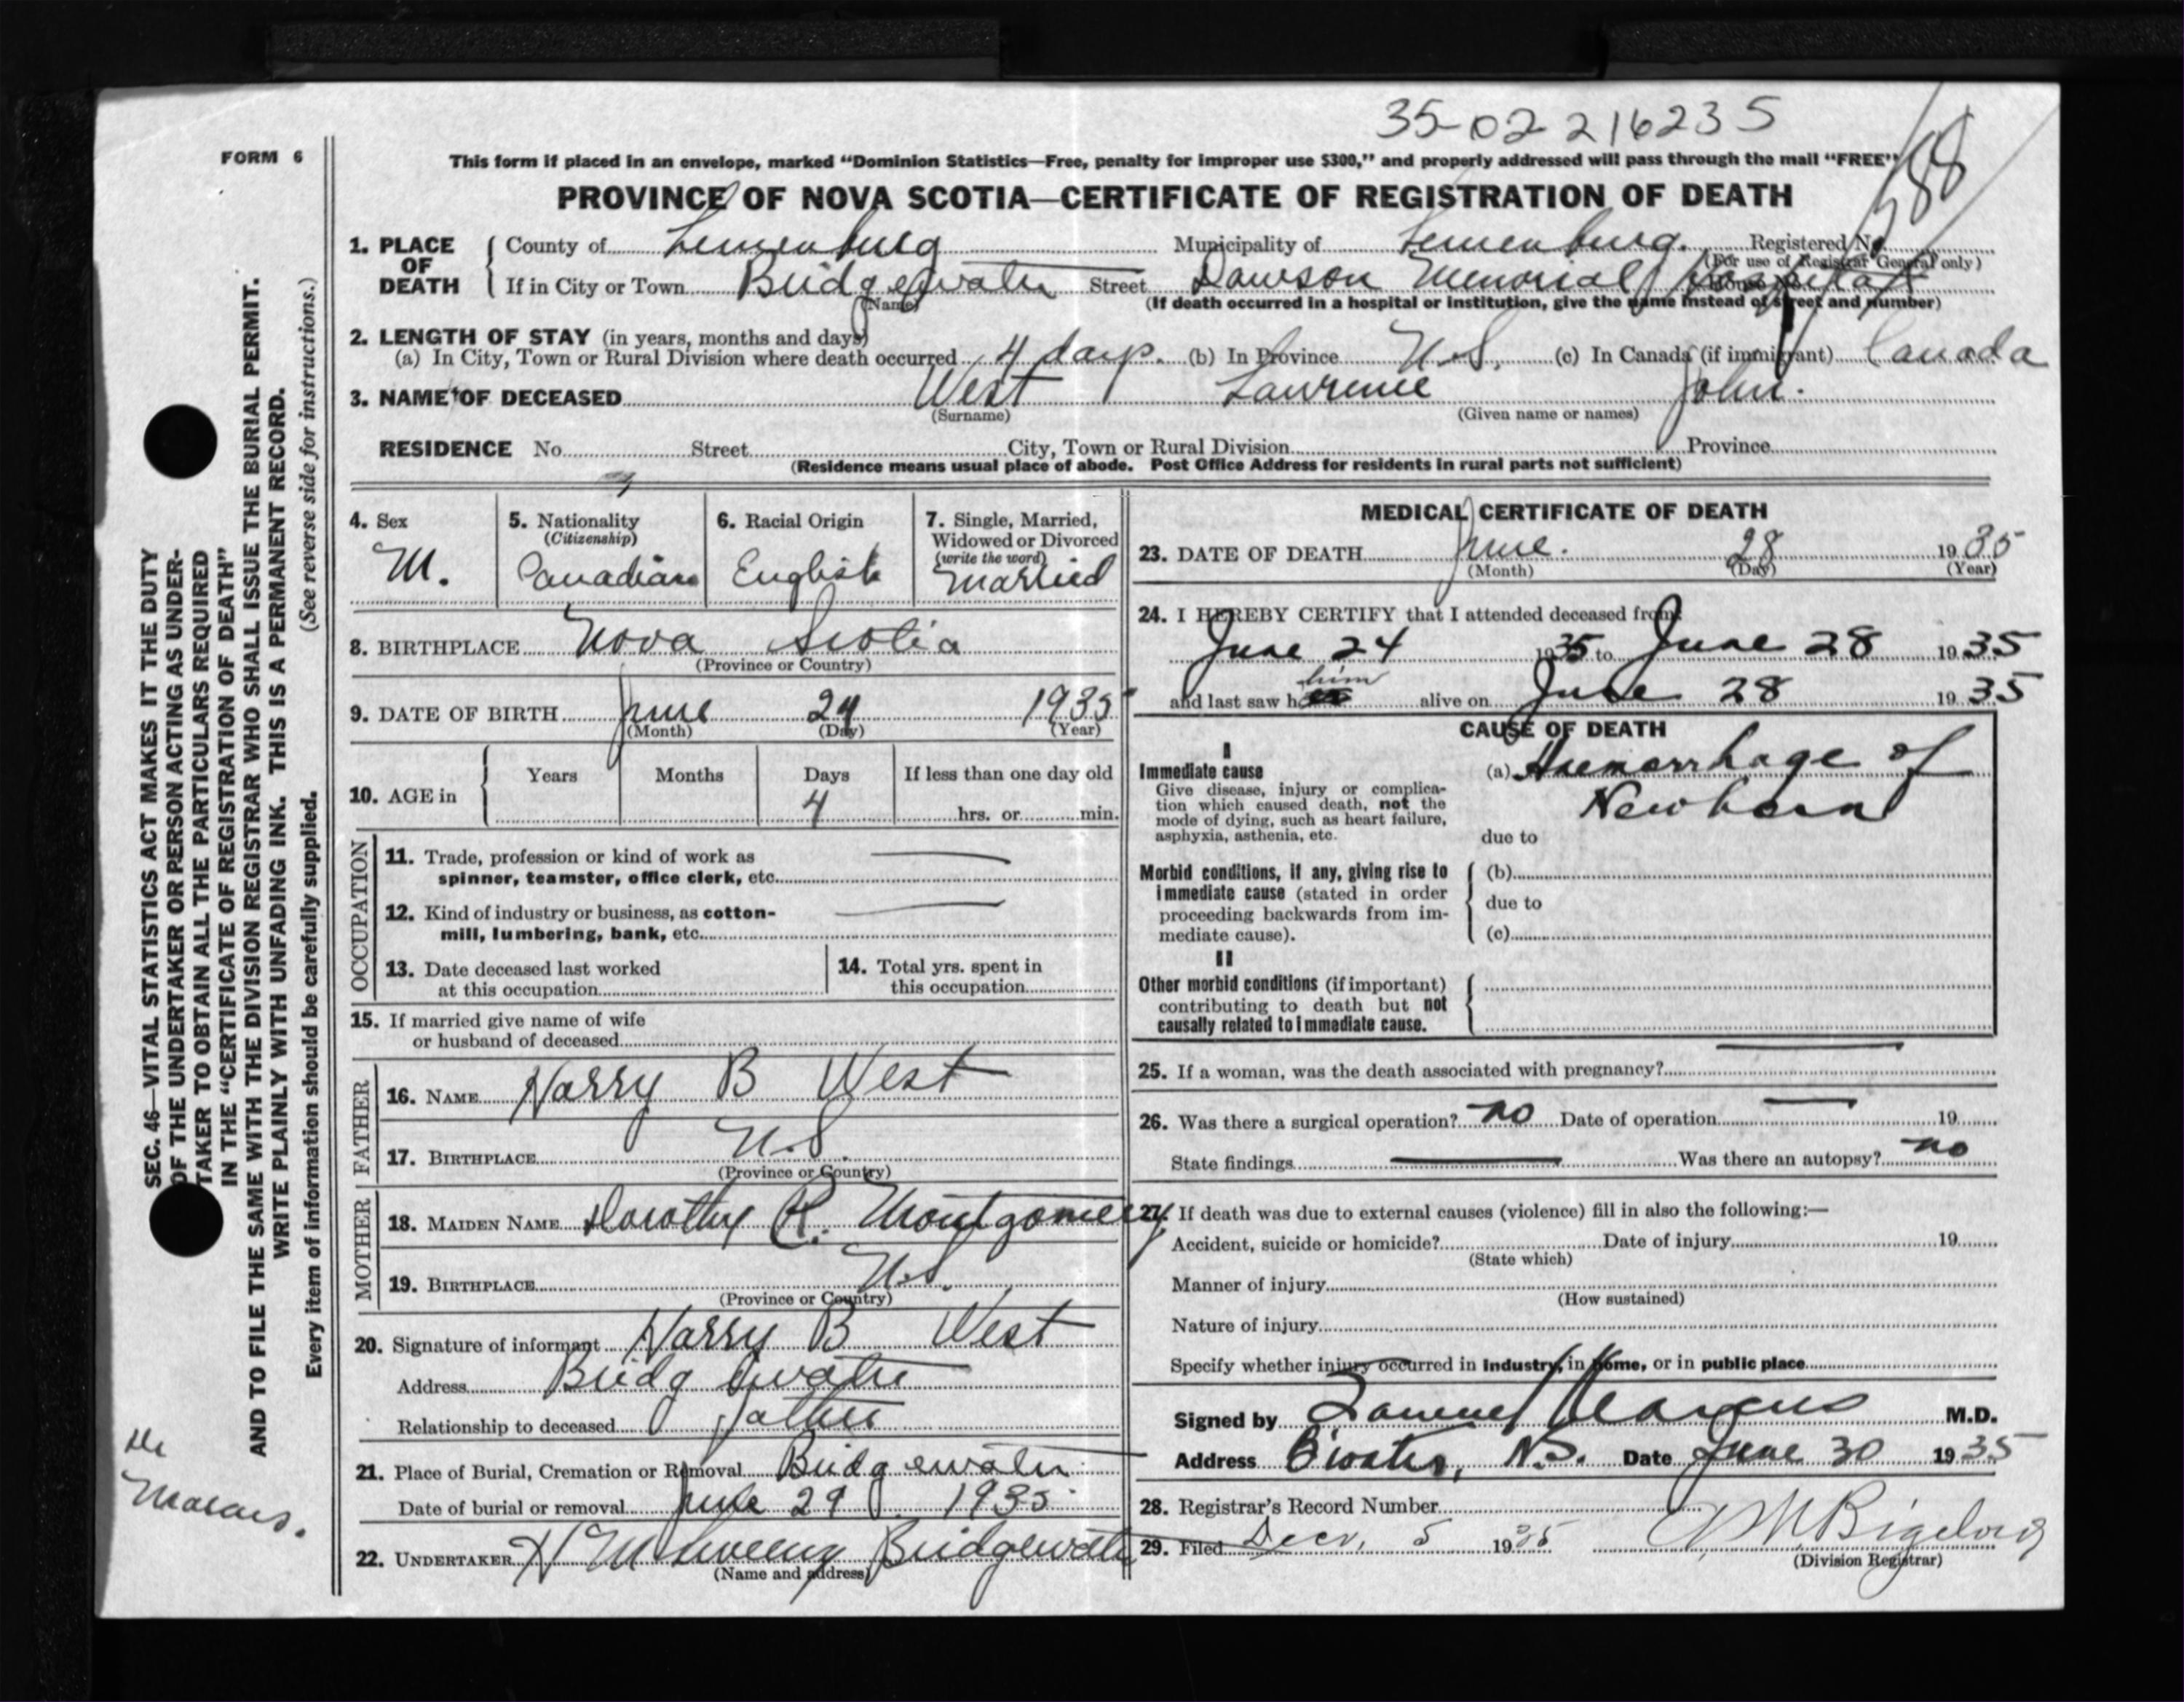 35-02 216235
FORM 6
This form if placed in an envelope, marked “Dominion Statistics—Free, penalty for improper use $300,” and properly addressed will pass through the mail “FREE”
PROVINCE OF NOVA SCOTIA—CERTIFICATE OF REGISTRATION OF DEATH
1. PLACE OF DEATH County of Lunenburg Municipality of Lunenburg. Registered No.
(For use of Registrar General only)
If in City or Town Bridgewater Street Dawson Memorial Hospital
(Name) (If death occurred in a hospital or institution, give the name instead of street and number)
2. LENGTH OF STAY (in years, months and days)
(a) In City, Town or Rural Division where death occurred 4 days. (b) In Province N.S. (c) In Canada (if immigrant) Canada
3. NAME OF DECEASED West Lawrence John.
(Surname) (Given name or names)
RESIDENCE No. Street City, Town or Rural Division Province
(Residence means usual place of abode. Post Office Address for residents in rural parts not sufficient)
4. Sex M.
5. Nationality (Citizenship) Canadian
6. Racial Origin English
7. Single, Married, Widowed or Divorced (write the word) Married
8. BIRTHPLACE Nova Scotia
(Province or Country)
9. DATE OF BIRTH June 24 1935
(Month) (Day) (Year)
10. AGE in Years Months Days If less than one day old
4 hrs. or min.
OCCUPATION
11. Trade, profession or kind of work as
spinner, teamster, office clerk, etc.
12. Kind of industry or business, as cotton-
mill, lumbering, bank, etc.
13. Date deceased last worked
at this occupation
14. Total yrs. spent in
this occupation
15. If married give name of wife
or husband of deceased
FATHER
16. NAME Harry B West
17. BIRTHPLACE N.S.
(Province or Country)
MOTHER
18. MAIDEN NAME Dorothy R. Montgomery
19. BIRTHPLACE N.S.
(Province or Country)
20. Signature of informant Harry B West
Address Bridgewater
Relationship to deceased father
21. Place of Burial, Cremation or Removal Bridgewater
Date of burial or removal June 29 1935
22. UNDERTAKER Bridgewater
(Name and address)
MEDICAL CERTIFICATE OF DEATH
23. DATE OF DEATH June. 28 1935
(Month) (Day) (Year)
24. I HEREBY CERTIFY that I attended deceased from
June 24 1935 to June 28 1935
and last saw him alive on June 28 1935
CAUSE OF DEATH
I
Immediate cause (a) Haemorrhage of
Newborn
Give disease, injury or complica-
tion which caused death, not the
mode of dying, such as heart failure,
asphyxia, asthenia, etc. due to
Morbid conditions, if any, giving rise to (b)
immediate cause (stated in order due to
proceeding backwards from im-
mediate cause). (c)
II
Other morbid conditions (if important)
contributing to death but not
causally related to immediate cause.
25. If a woman, was the death associated with pregnancy?
26. Was there a surgical operation? no Date of operation 19
State findings Was there an autopsy? no
27. If death was due to external causes (violence) fill in also the following:—
Accident, suicide or homicide? Date of injury 19
(State which)
Manner of injury
(How sustained)
Nature of injury
Specify whether injury occurred in industry, in home, or in public place
Signed by Samuel Marcus M.D.
Address B'water, N.S. Date June 30 1935
28. Registrar's Record Number
29. Filed Decr. 5 1935 Bigelow
(Division Registrar)
SEC. 46—VITAL STATISTICS ACT MAKES IT THE DUTY
OF THE UNDERTAKER OR PERSON ACTING AS UNDER-
TAKER TO OBTAIN ALL THE PARTICULARS REQUIRED
IN THE “CERTIFICATE OF REGISTRATION OF DEATH”
AND TO FILE THE SAME WITH THE DIVISION REGISTRAR WHO SHALL ISSUE THE BURIAL PERMIT.
WRITE PLAINLY WITH UNFADING INK. THIS IS A PERMANENT RECORD.
Every item of information should be carefully supplied. (See reverse side for instructions.)
Dr
Marcus.